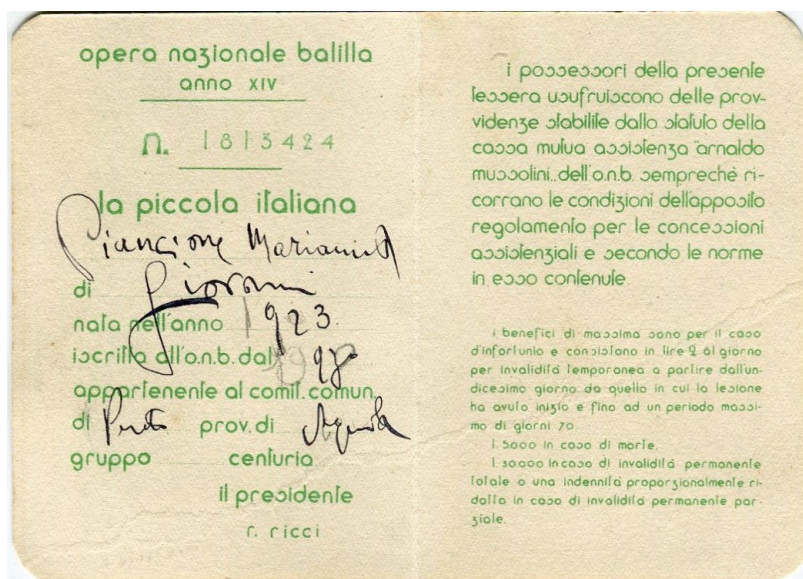 opera nazionale balilla
anno XIV
n. 1813424
la piccola italiana
Piancione
di Giovanni
nata nell'anno 1923
iscritta all'o.n.b. dal
appartenente al comit. comun.
di prov. di Aquila
gruppo centuria
il presidente
r. ricci
i possessori della presente
tessera usufruiscono delle prov-
videnze stabilite dallo statuto della
cassa mutua assistenza "arnaldo
mussolini„ dell'o.n.b. sempreché ri-
corrano le condizioni dell'apposito
regolamento per le concessioni
assistenziali e secondo le norme
in esso contenute
i benefici di massima sono per il caso
d'infortunio e consistono in lire 2 al giorno
per invalidità temporanea a partire dall'un-
dicesimo giorno da quello in cui la lesione
ha avuto inizio e fino ad un periodo massi-
mo di giorni 70.
l. 5000 in caso di morte.
l. 30000 in caso di invalidità permanente
totale o una indennità proporzionalmente ri-
dotta in caso di invalidità permanente par-
ziale.